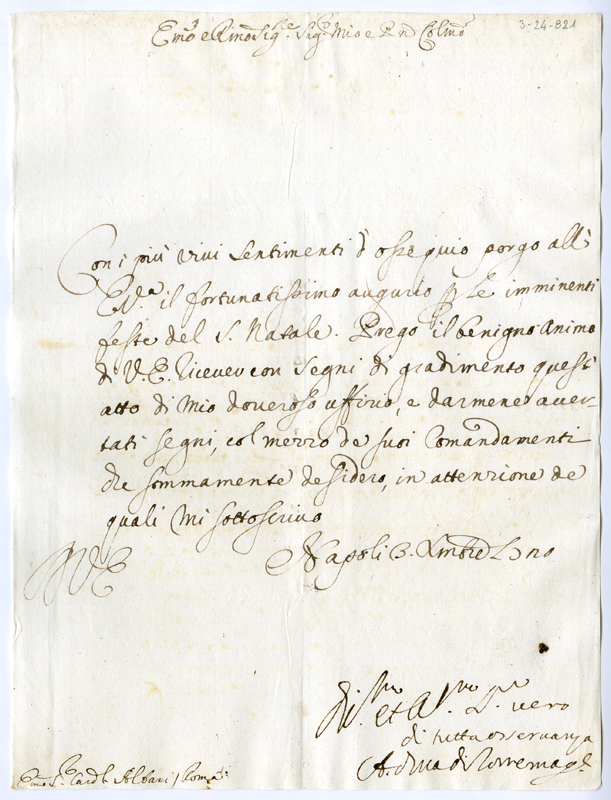 3-24-821
Emo e Rmo Sigre. Sigr Mio e Prōn Colmo
Con i più vivi sentimenti d'ossequio porgo all'
E Va il fortunatissimo augurio p le imminenti
feste del S. Natale. Prego il benigno animo
di V. E. ricever con segni di gradimento questi
atto di mio doveroso uffizio, e darmene accer-
tati segni, col mezzo de suoi comandamenti
che sommamente desidero, in attenzione de
quali mi sottoscrivo
Napoli 3. Xmbre
V E
vero
di tutta osservanza
Emo Sr. Cardl. Albani / Roma